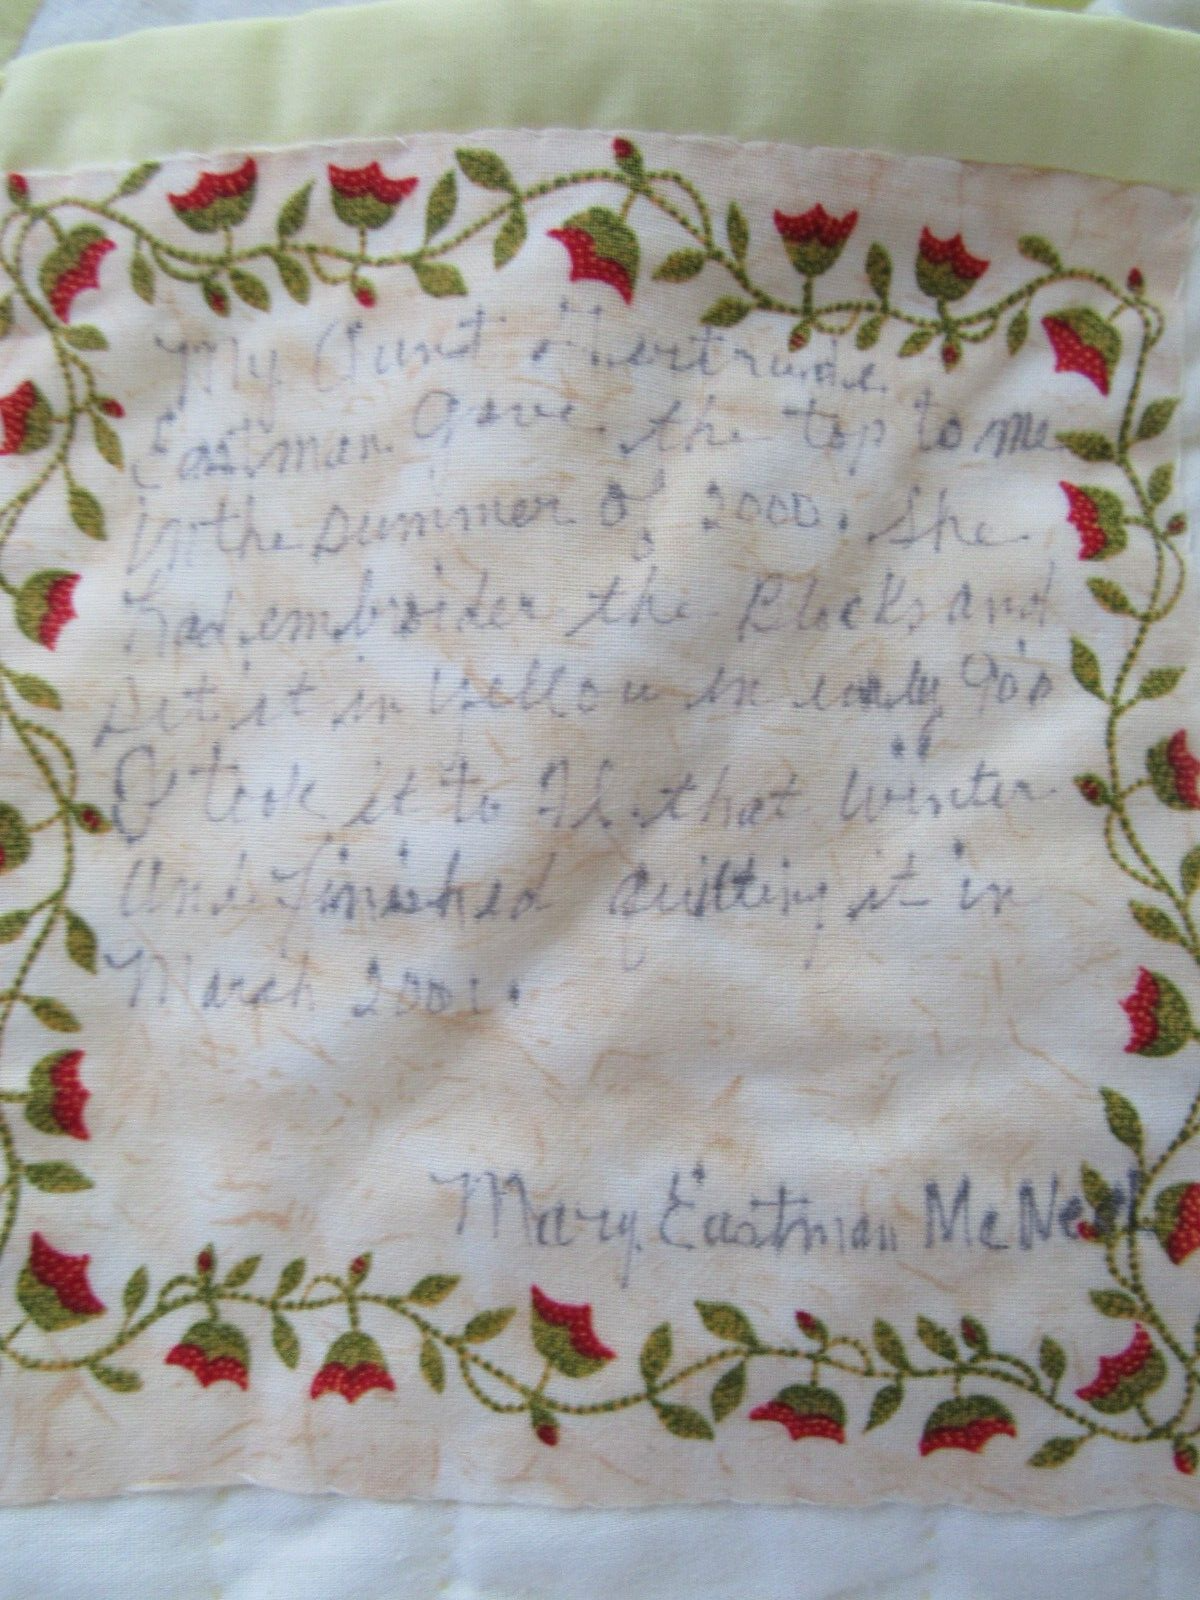 My Aunt Gertrude
Eastman gave the top to me
in the summer of 2000. She
had embroider the Blocks and
set it in yellow in early 90's
I took it to Fl. that winter
and finished quilting it in
March 2001.
Mary Eastman McNeal